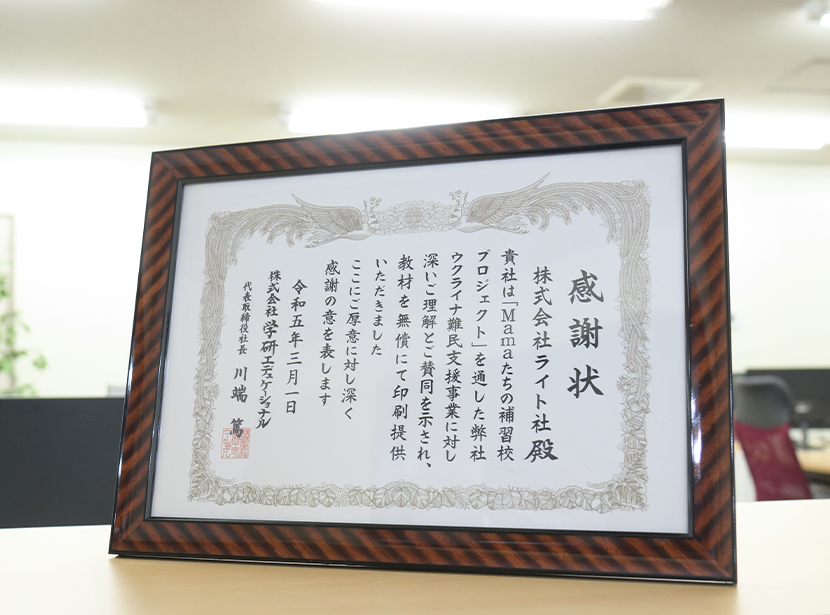 感謝状
株式会社ライト社殿
貴社は「Mamaたちの補習校
プロジェクト」を通した弊社
ウクライナ難民支援事業に対し
深いご理解とご賛同を示され、
教材を無償にて印刷提供
いただきました
ここにご厚意に対し深く
感謝の意を表します
令和五年三月一日
株式会社 学研エデュケーショナル
代表取締役社長 川端 篤